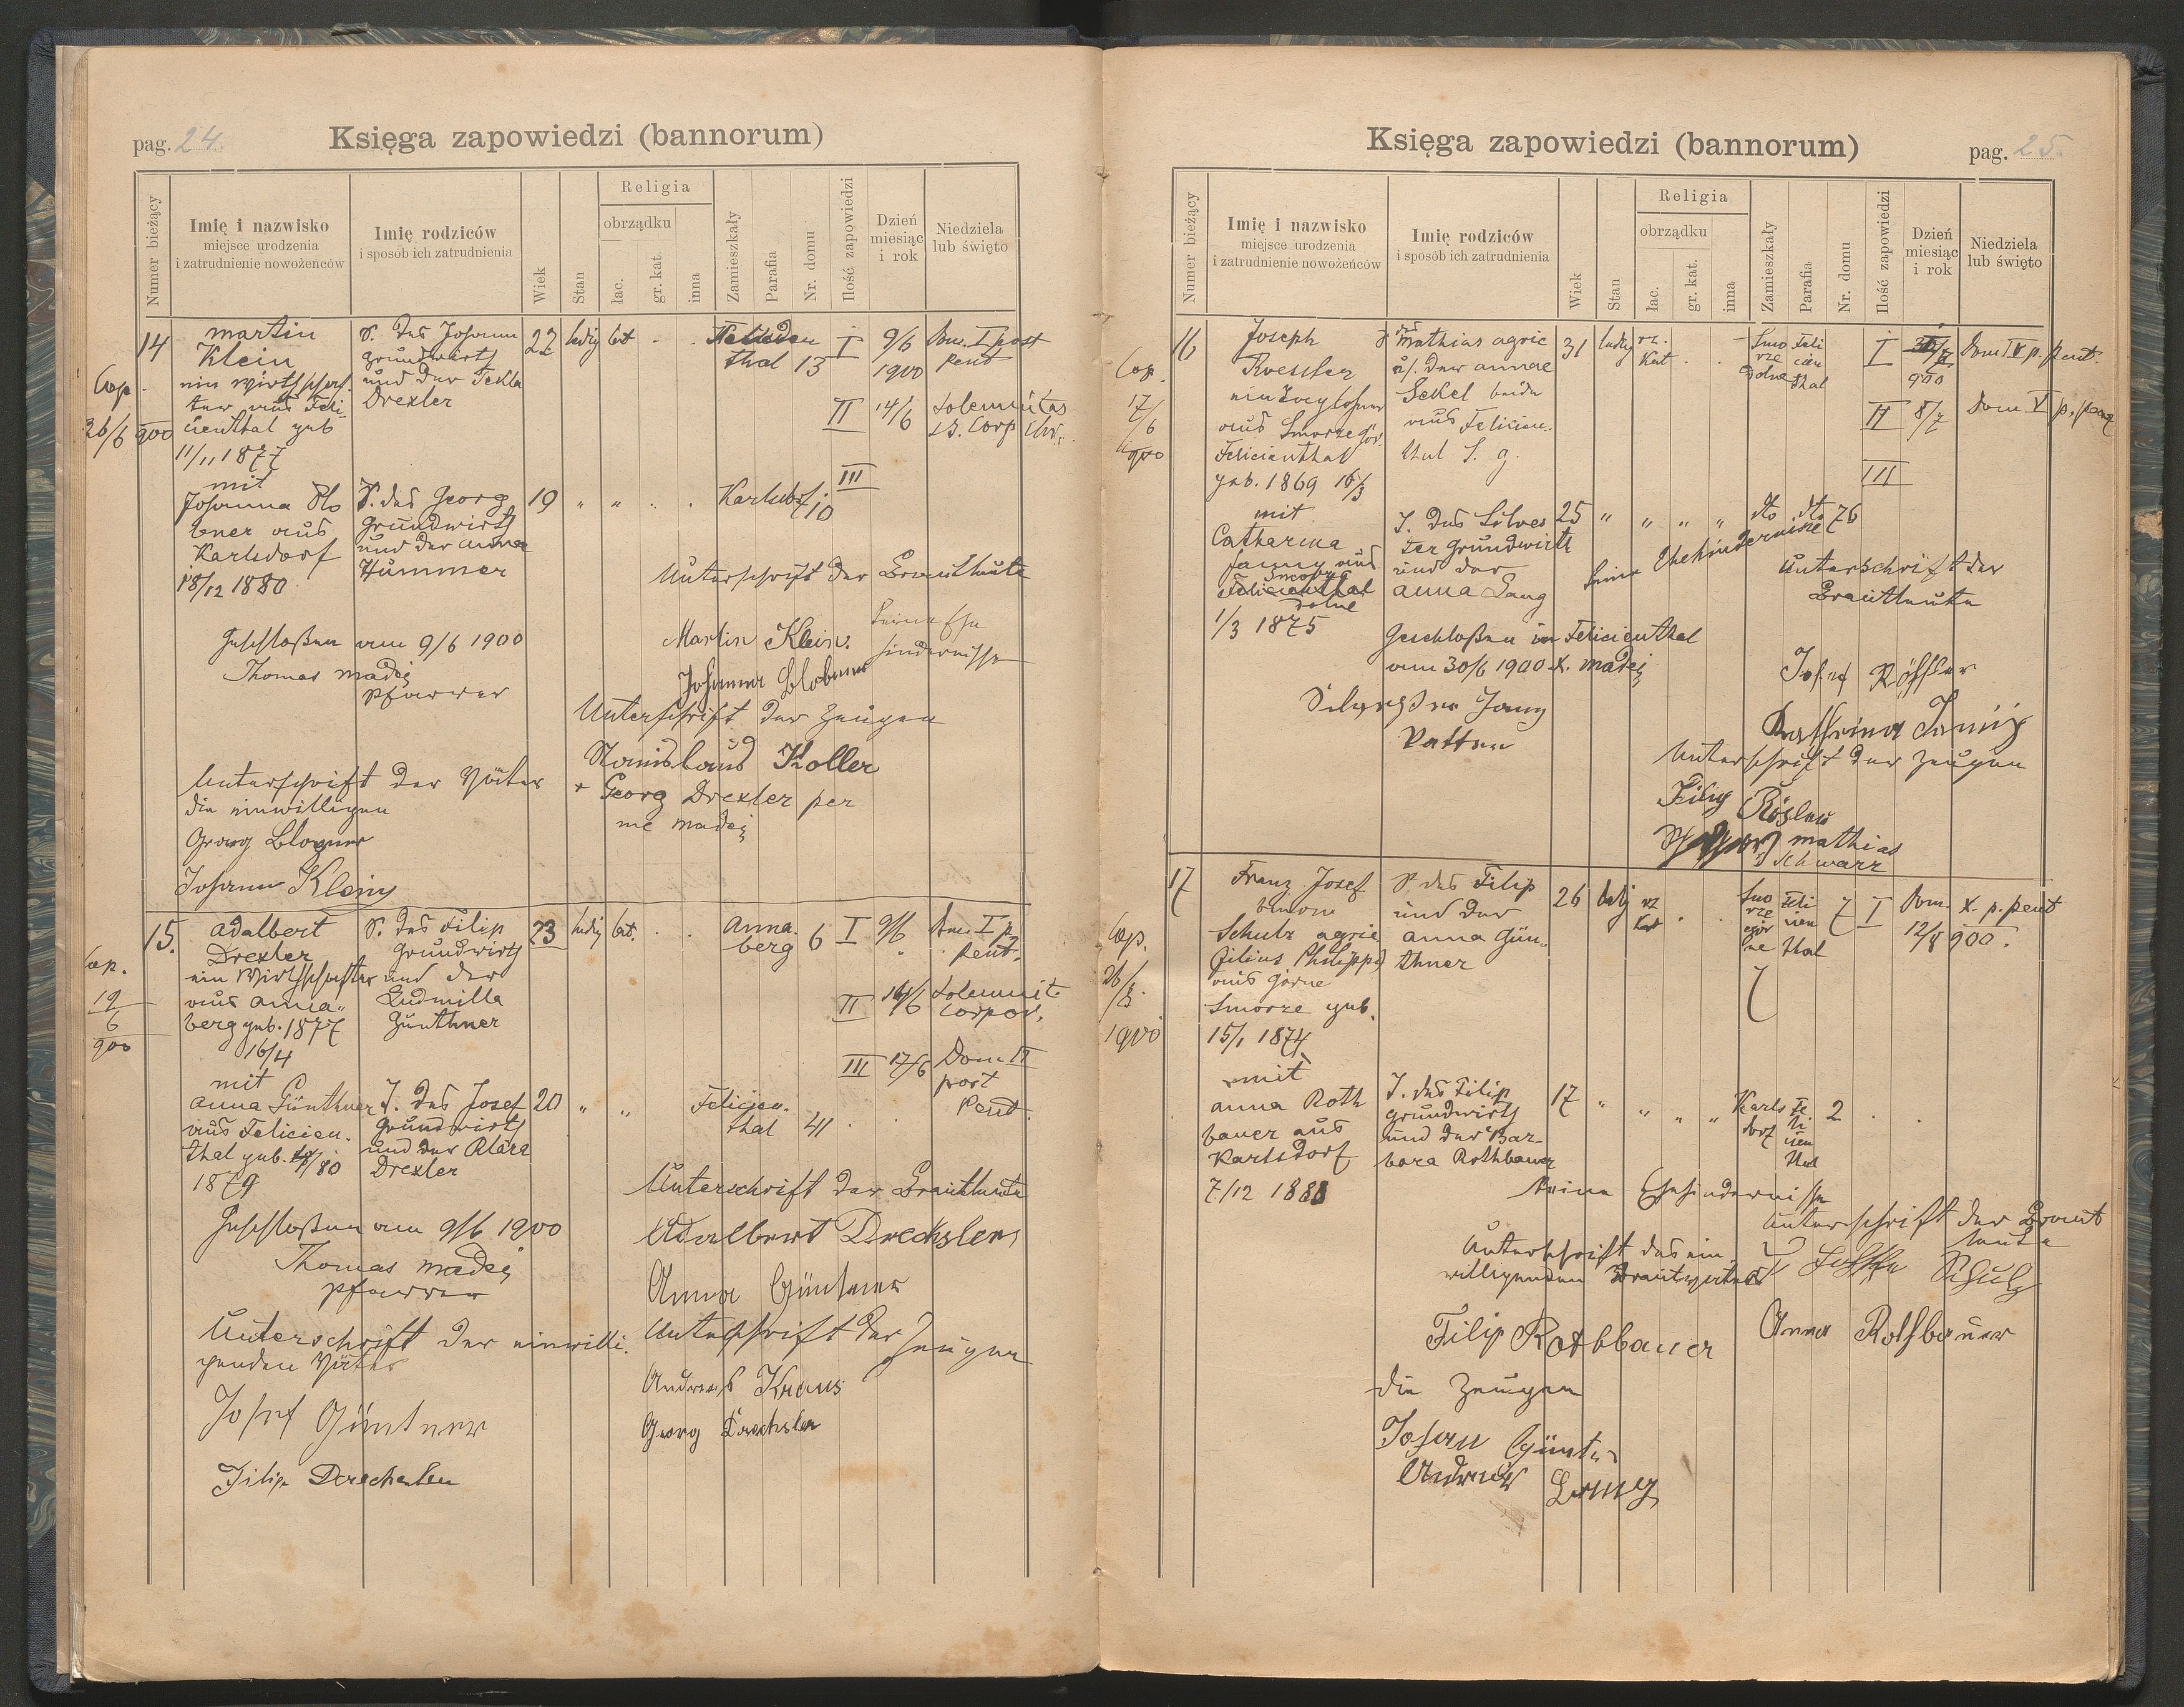 pag. 24.
Księga zapowiedzi (bannorum)
Numer bieżący
Imię i nazwisko
miejsce urodzenia
i zatrudnienie nowożeńców
Imię rodziców
i sposób ich zatrudnienia
Wiek
Stan
Religia
obrządku
łac.
gr. kat.
inna
Zamieszkały
Parafia
Nr. domu
Ilość zapowiedzi
Dzień
miesiąc
i rok
Niedziela
lub święto
14
Cop.
26/6 900
Martin
Klein
ein Wirthschaf
ter aus Feli-
cienthal geb
11/11 1877
mit
Johanna Blo
bner aus
Karlsdorf
18/12 1880
S. des Johann
Grundwirth
und der Tekla
Drexler
22 ledig lat
thal 13
I 9/6 1900 Dom. I post Pent
II 14/6 Solemnitas
SS. Corp. Chr.
III
T. des Georg
Grundwirth
und der Anna
Hummer
19 " "
Karlsdorf 10
Unterschrift der Brautleute
Geschloßen am 9/6 1900
Thomas Madej
Pfarrer
Martin Klein.
Keine Ehe
hindernisse
Johanna Blobner
Unterschrift der Zeugen
Stanislaus Koller
+ Georg Drexler per
me Madej
Unterschrift der Väter
die einwilligen
Georg
Johann Klein
15.
Cop.
19
6
900
Adalbert
Drexler
ein Wirthschafter
aus Anna-
berg geb. 1877
16/4
mit
Anna Günthner
aus Felicien-
thal geb.
1879
S. des Filip
Grundwirth
und der
Ludmilla
Günthner
23 ledig lat.
Anna-
berg 6
I 9/6 Dom. I p.
Pent.
II 14/6 Solemnit.
Corpor.
III 17/6 Dom II
post
Pent
T. des Josef
Grundwirth
und der Klara
Drexler
20 " "
Felicien-
thal 41
Unterschrift der Brautleute
Geschloßen am 9/6 1900
Thomas Madej
Pfarrer
Adalbert Drechsler
Anna Güntner
Unterschrift der einwilli-
genden Väter
Unterschrift der Zeugen
Josef Güntner
Andreas Kraus
Georg Drechsler
Filip Drechsler
Księga zapowiedzi (bannorum)
pag. 25.
Numer bieżący
Imię i nazwisko
miejsce urodzenia
i zatrudnienie nowożeńców
Imię rodziców
i sposób ich zatrudnienia
Wiek
Stan
Religia
obrządku
łac.
gr. kat.
inna
Zamieszkały
Parafia
Nr. domu
Ilość zapowiedzi
Dzień
miesiąc
i rok
Niedziela
lub święto
16
Cop.
17/6
900
Joseph
Roessler
aus Smorze gór.
Felicienthal
geb. 1869 16/3
mit
Catharina
Janny aus
Smorze
Felicienthal
dolne
1/3 1875
S des Mathias agric
u. der Annae
Sekel beide
aus Felicien-
thal
31 ledig rz. Kat
Smo
rze
dolne
Feli
cien
thal
I 1/7 900 Dom IV p. Pent.
II 8/7 Dom V p. Pent
III
T. des Silves
ter Grundwirth
und der
Anna Lang
25 " " " " dto dto 76
Keine Ehehindernise
Unterschrift der
Brautleute
Geschloßen in Felicienthal
am 30/6 1900 X. Madej
Silvester Jany
Vatter
Josef Rößler
Katharina
Unterschrift der Zeugen
Filip Rösler
Mathias
Schwarz
17
Cop.
26/8.
1900
Franz Josef
Schulz agric
(filius Philippi)
aus Górne
Smorze geb.
15/1 1874
mit
Anna Roth
bauer aus
Karlsdorf
7/12 1883
S. des Filip
und der
Anna Gün-
thner
26 ledig rz Kat
Smo
rze
gór
ne
Feli
cien
thal
7 I Dom. X. p. Pent
12/8 900.
T. des Filip
Grundwirth
und der Bar-
bara Rothbauer
17 " " " "
Karls
dorf
Fe
li
cien
thal
2
Keine Ehehindernisse
Unterschrift der Braut
leute
Unterschrift des ein-
willigenden Brautvaters
Schulz
Filip Rothbauer
Anna Rothbauer
die Zeugen
Johann Güntner
Andreas Lang